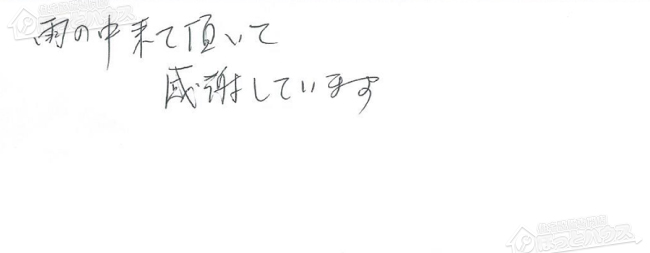 雨の中来て頂いて
感謝しています